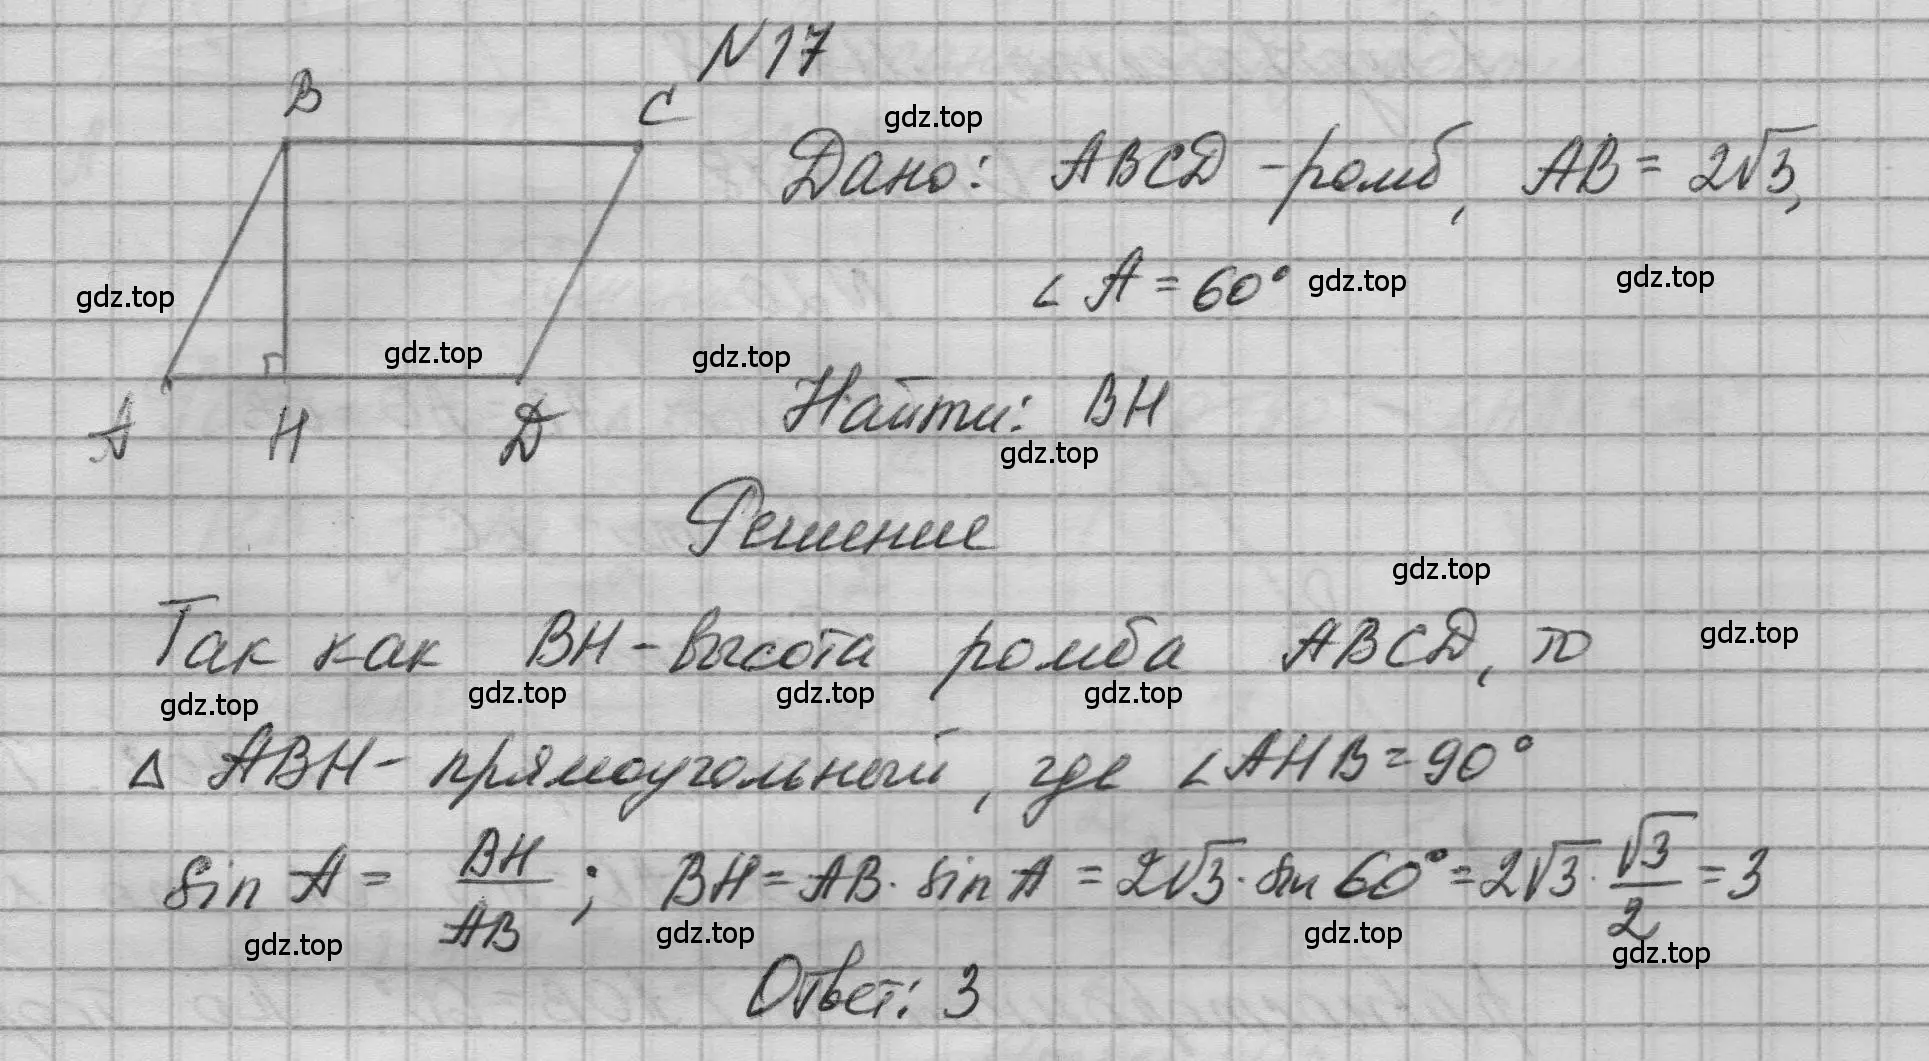 N 17
B
C
gdz.top
Дано: ABCD - ромб, AB = 2√3,
gdz.top
∠ A = 60°
gdz.top
gdz.top
gdz.top
gdz.top
Найти: BH
A
H
D
gdz.top
Решение
gdz.top
Так как BH - высота ромба ABCD, то
gdz.top
gdz.top
gdz.top
gdz.top
gdz.top
△ ABH - прямоугольный, где ∠AHB = 90°
sin A = BH/AB ; BH = AB · sin A = 2√3 · sin 60° = 2√3 · √3/2 = 3
gdz.top
gdz.top
gdz.top
gdz.top
Ответ: 3